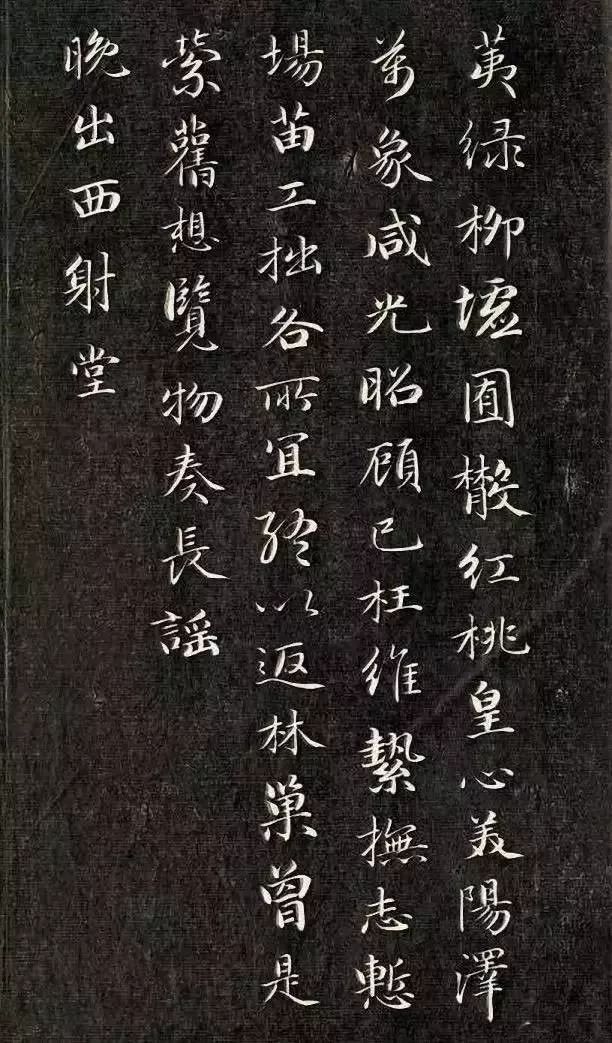 荑绿柳墟囿散红桃皇心美陽澤
萬象咸光昭顧己枉維縶撫志慙
場苗工拙各所宜終以返林巢曾是
縈舊想覽物奏長謠
晚出西射堂